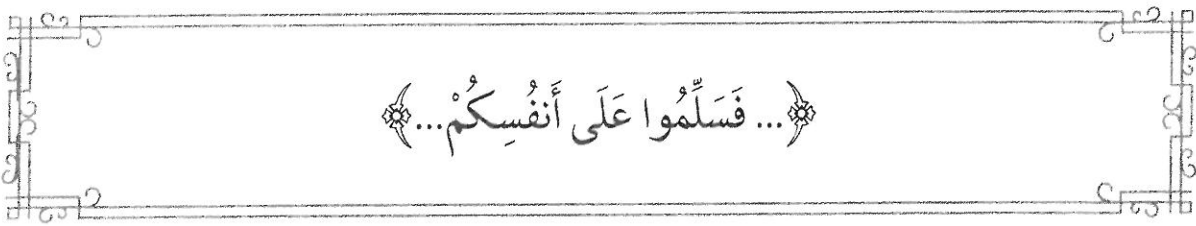 ﴿... فَسَلِّمُوا عَلَى أَنفُسِكُمْ...﴾